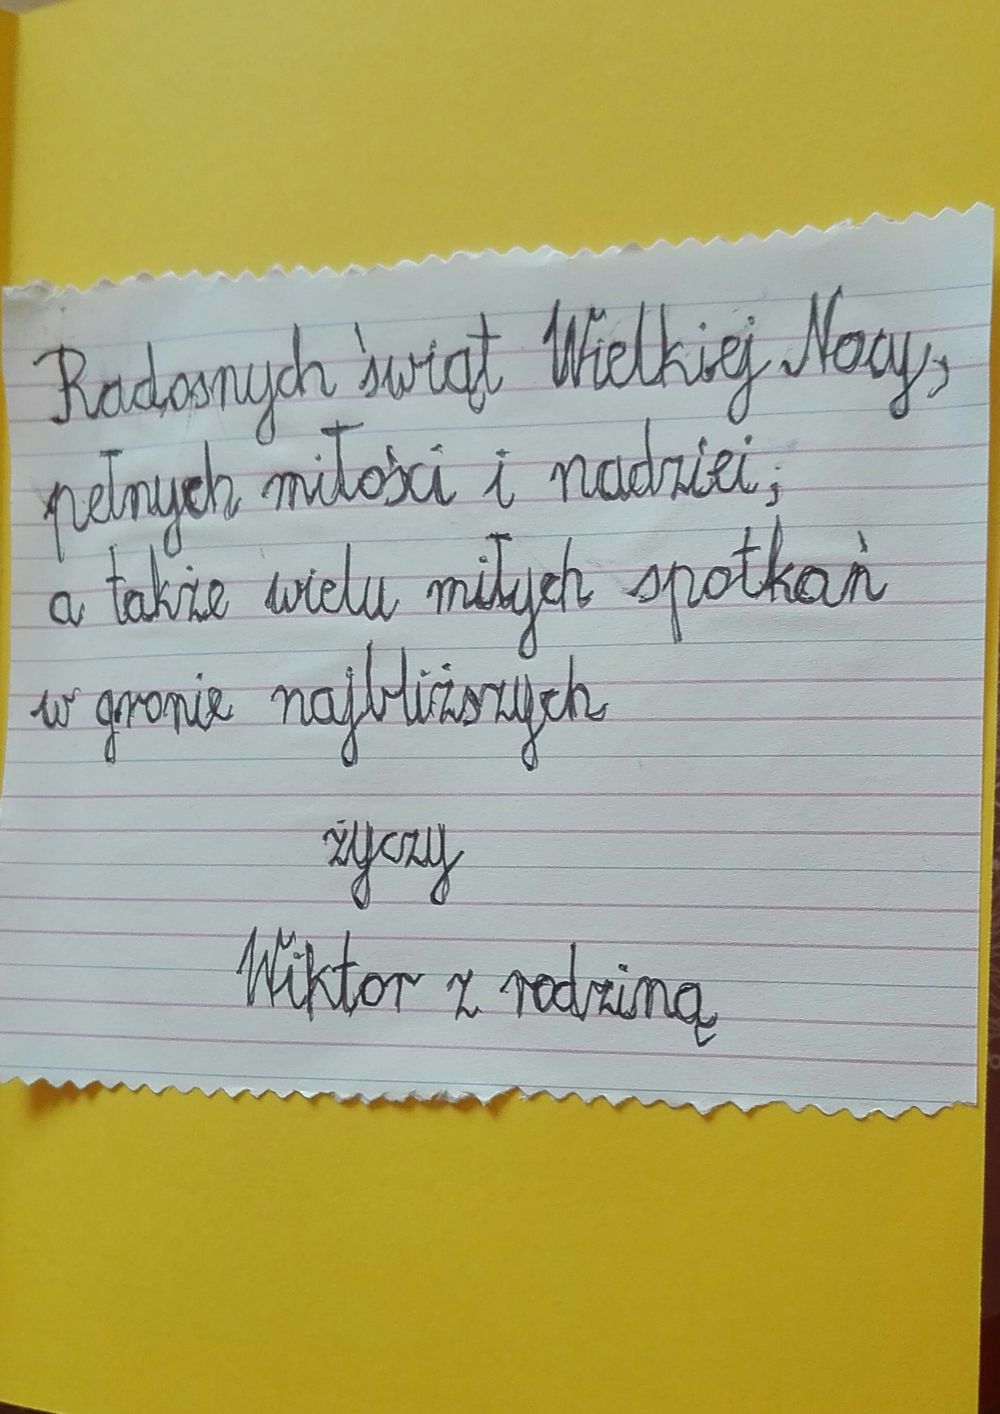 Radosnych świąt Wielkiej Nocy,
pełnych miłości i nadziei,
a także wielu miłych spotkań
w gronie najbliższych
życzy
Wiktor z rodziną